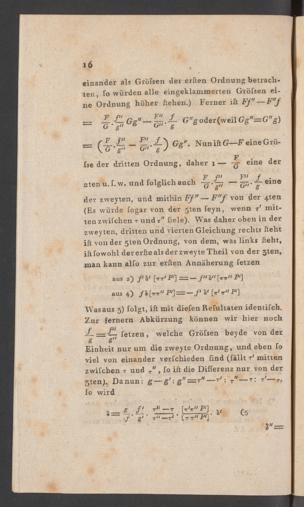 16
einander als Gröſsen der erſten Ordnung betrach-
ten, ſo würden alle eingeklammerten Gröſsen ei-
ne Ordnung höher ſtehen.) Ferner iſt Ff″—F″f
= F/G · f″/g″ Gg″— F″/G″ · f/g · G″g oder (weil Gg″=G″g)
= (F/G · f″/g″ — F″/G″ · f/g) Gg″. Nun iſt G—F eine Grö-
ſse der dritten Ordnung, daher 1 — F/G eine der
2ten u.ſ.w. und folglich auch F/G · f″/g″ — F″/G″ · f/g eine
der zweyten, und mithin Ff″—F″f von der 4ten
(Es würde ſogar von der 5ten ſeyn, wenn τ′ mit-
ten zwiſchen τ und τ″ fiele). Was daher oben in der
zweyten, dritten und vierten Gleichung rechts ſteht
iſt von der 5ten Ordnung, von dem, was links ſteht,
iſt ſowohl der erſte als der zweyte Theil von der 3ten,
man kann alſo zur erſten Annäherung ſetzen
aus 2)
aus 4)
Was aus 3) folgt, iſt mit dieſen Reſultaten identiſch.
Zur fernern Abkürzung können wir hier noch
f/g = f″/g″ ſetzen, welche Gröſsen beyde von der
Einheit nur um die zweyte Ordnung, und eben ſo
viel von einander verſchieden ſind (fällt τ′ mitten
zwiſchen τ und τ″, ſo iſt die Differenz nur von der
3ten). Da nun: g—g′: g″=τ″—τ′: τ″—τ: τ′—τ,
ſo wird
(5
δ″=